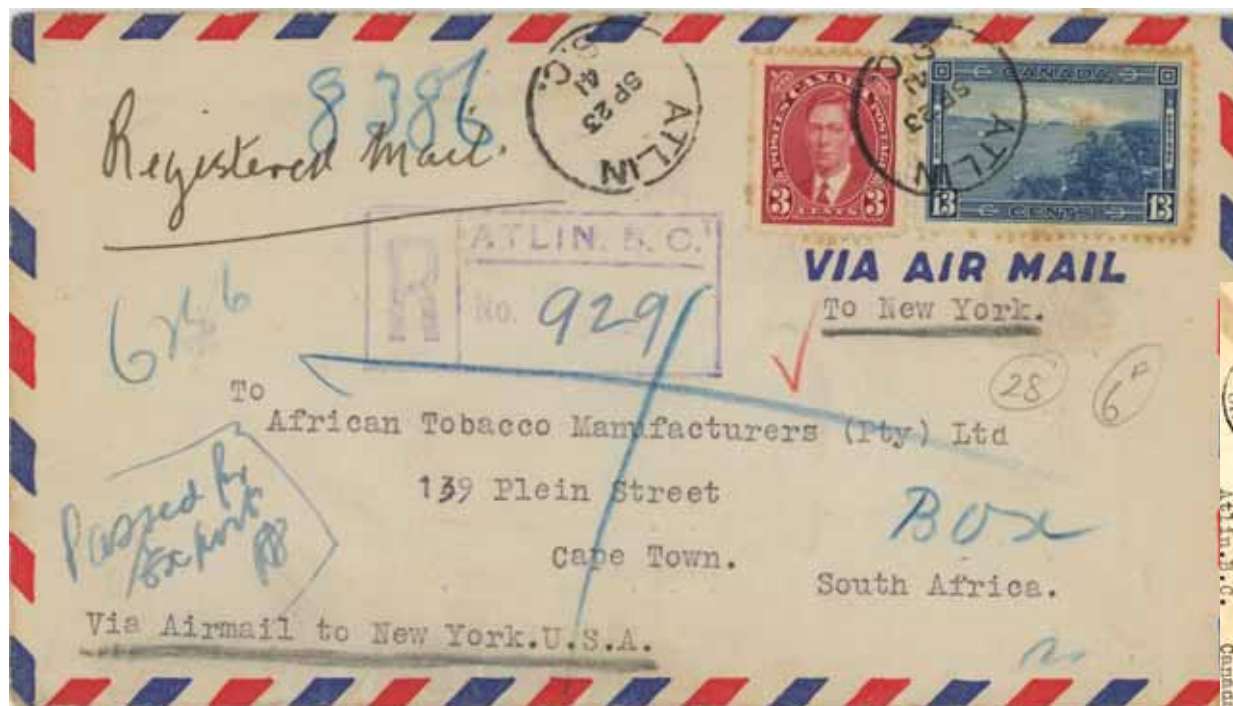 8386
Registered Mail.
ATLIN
SP 23
41
B.C.
ATLIN
SP 23
41
B.C.
POSTES CANADA POSTAGE
3 CENTS 3
CANADA
13 CENTS 13
R
ATLIN. B. C.
No. 929
VIA AIR MAIL
To New York.
28
6
To
African Tobacco Manufacturers (Pty) Ltd
139 Plein Street
Cape Town.
South Africa.
Box
Passed for
Export
Via Airmail to New York.U.S.A.
Atlin.B.C.